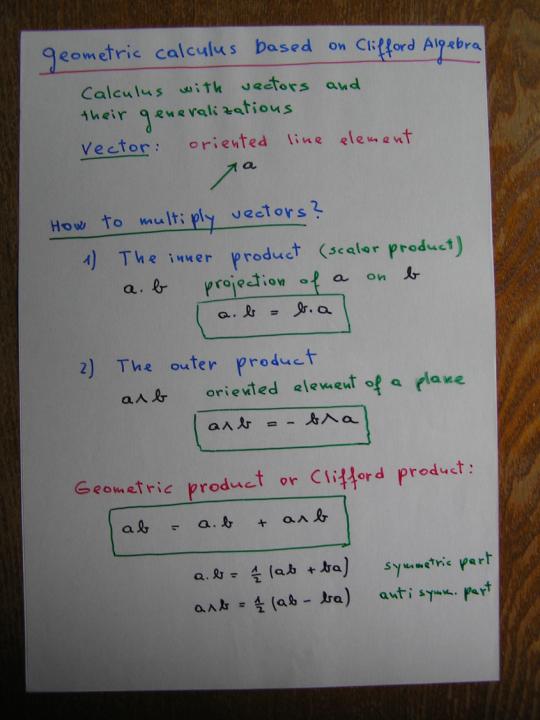 geometric calculus based on Clifford Algebra
Calculus with vectors and
their generalizations
Vector: oriented line element
a
How to multiply vectors?
1) The inner product (scalar product)
a . b projection of a on b
a . b = b . a
2) The outer product
a∧b oriented element of a plane
a∧b = - b∧a
Geometric product or Clifford product:
ab = a . b + a∧b
a.b = ½ (ab + ba) symmetric part
a∧b = ½ (ab - ba) anti symm. part